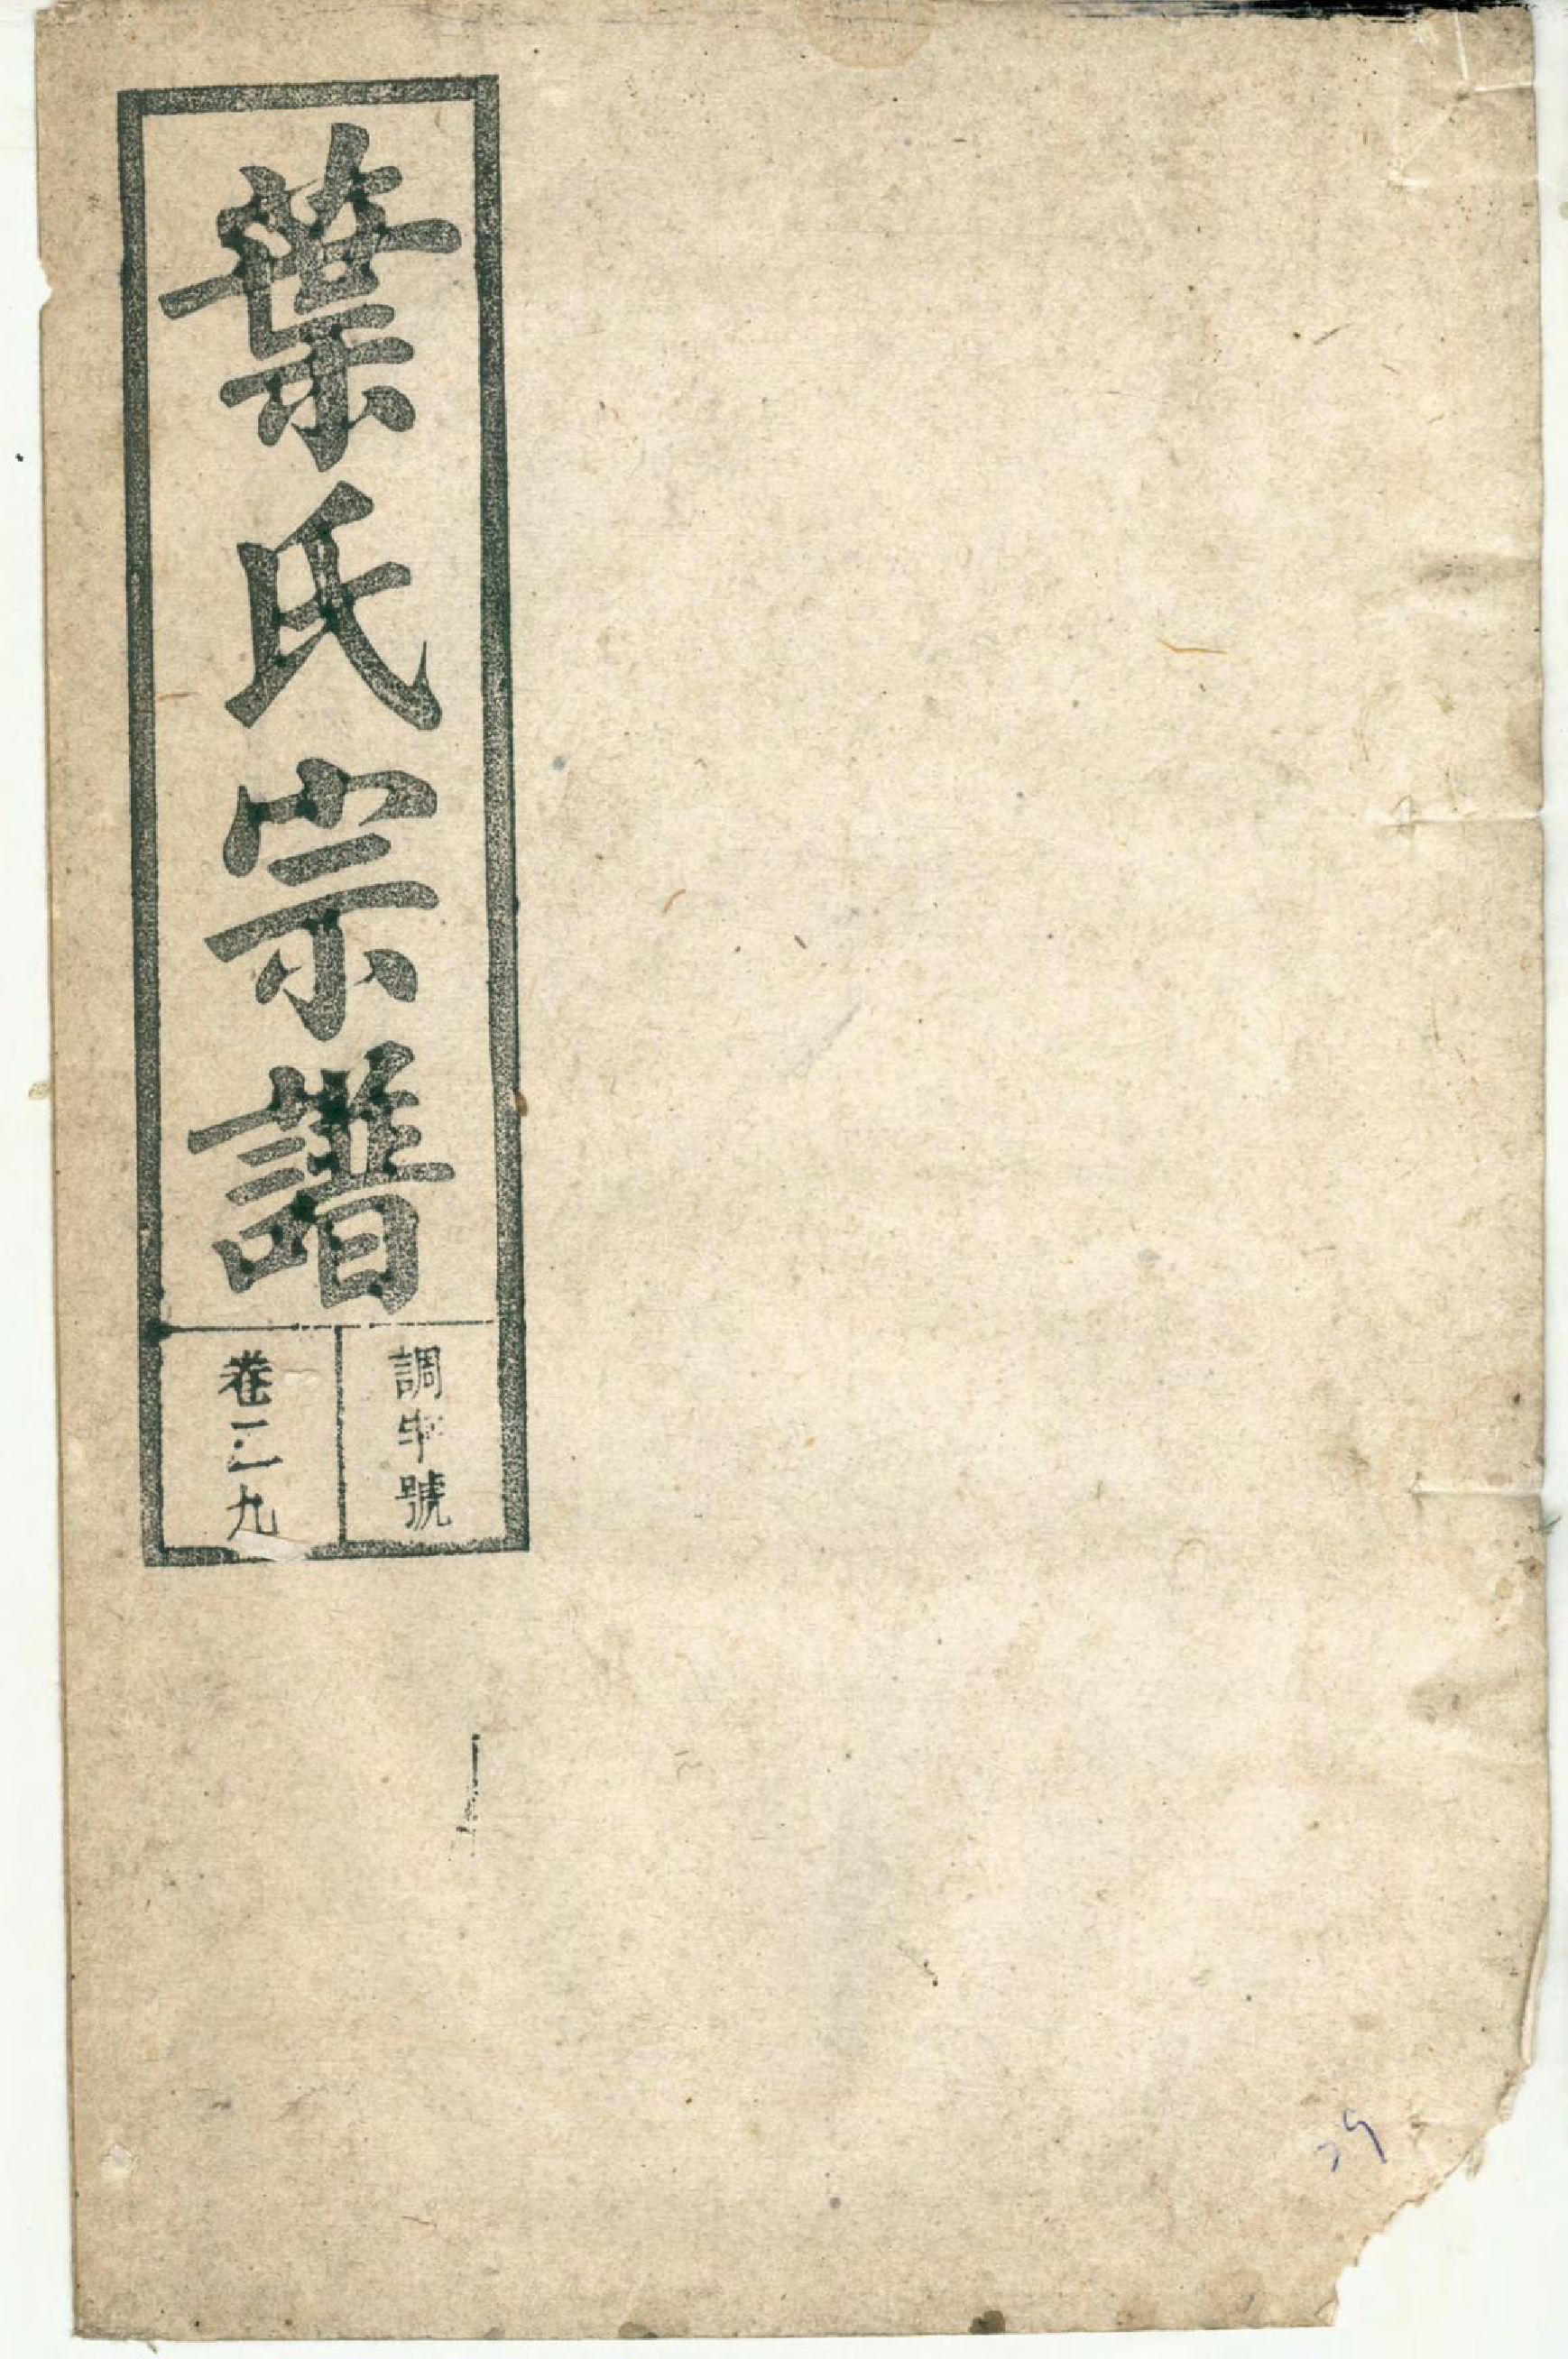 葉氏宗譜
調字號
卷二一九
29